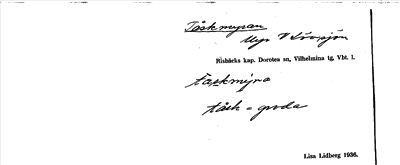 Tåskmyran
Myr V Lövsjön
Risbäcks kap. Dorotea sn, Vilhelmina tg. Vbt. l.
taskmýra
tåsk = groda
Lisa Lidberg 1936.